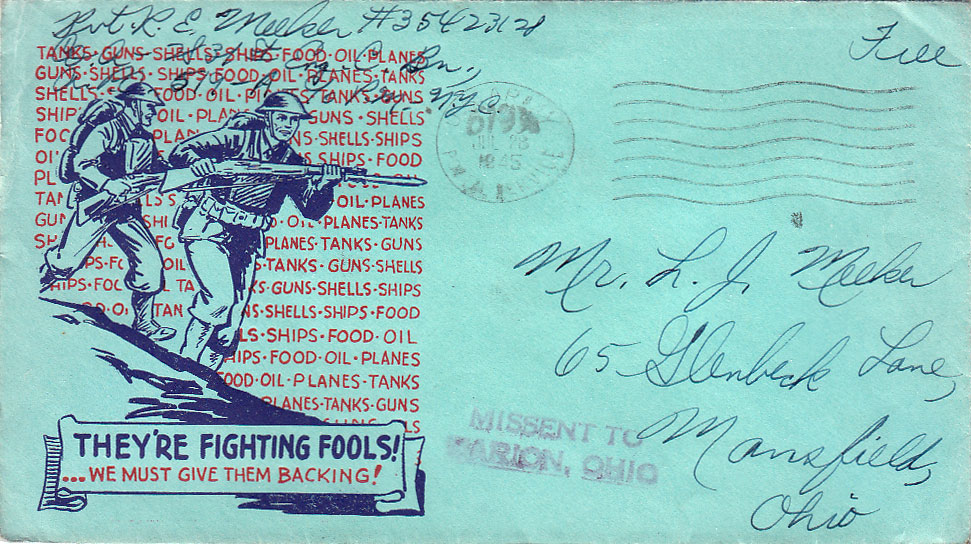 Pvt. R. E. Meeker #35423128
Free
TANKS·GUNS·SHELLS·SHIPS·FOOD·OIL·PLANES
GUNS·SHELLS·SHIPS·FOOD·OIL·PLANES·TANKS
SHELLS· FOOD·OIL·PLANTS·TANKS·GUNS
OIL·PLAN GUNS·SHELLS
FOO PLAN SHELLS·SHIPS
OI SHIPS·FOOD
PL FOOD·OIL
TAN LS·S OIL·PLANES
GUN SHI D·OIL·PLANES·TANKS
SH FO PLANES·TANKS·GUNS
PS·FO OIL S·TANKS·GUNS·SHELLS
HIPS·FOO L TA KS·GUNS·SHELLS·SHIPS
OD·O TAN NS·SHELLS·SHIPS·FOOD
LLS·SHIPS·FOOD·OIL
HIPS·FOOD·OIL·PLANES
FOOD·OIL·PLANES·TANKS
PLANES·TANKS·GUNS
LS
THEY'RE FIGHTING FOOLS!
...WE MUST GIVE THEM BACKING!
1945
Mr. L. J. Meeker
65 Glenbeck Lane,
Mansfield,
Ohio
MISSENT TO
MARION, OHIO